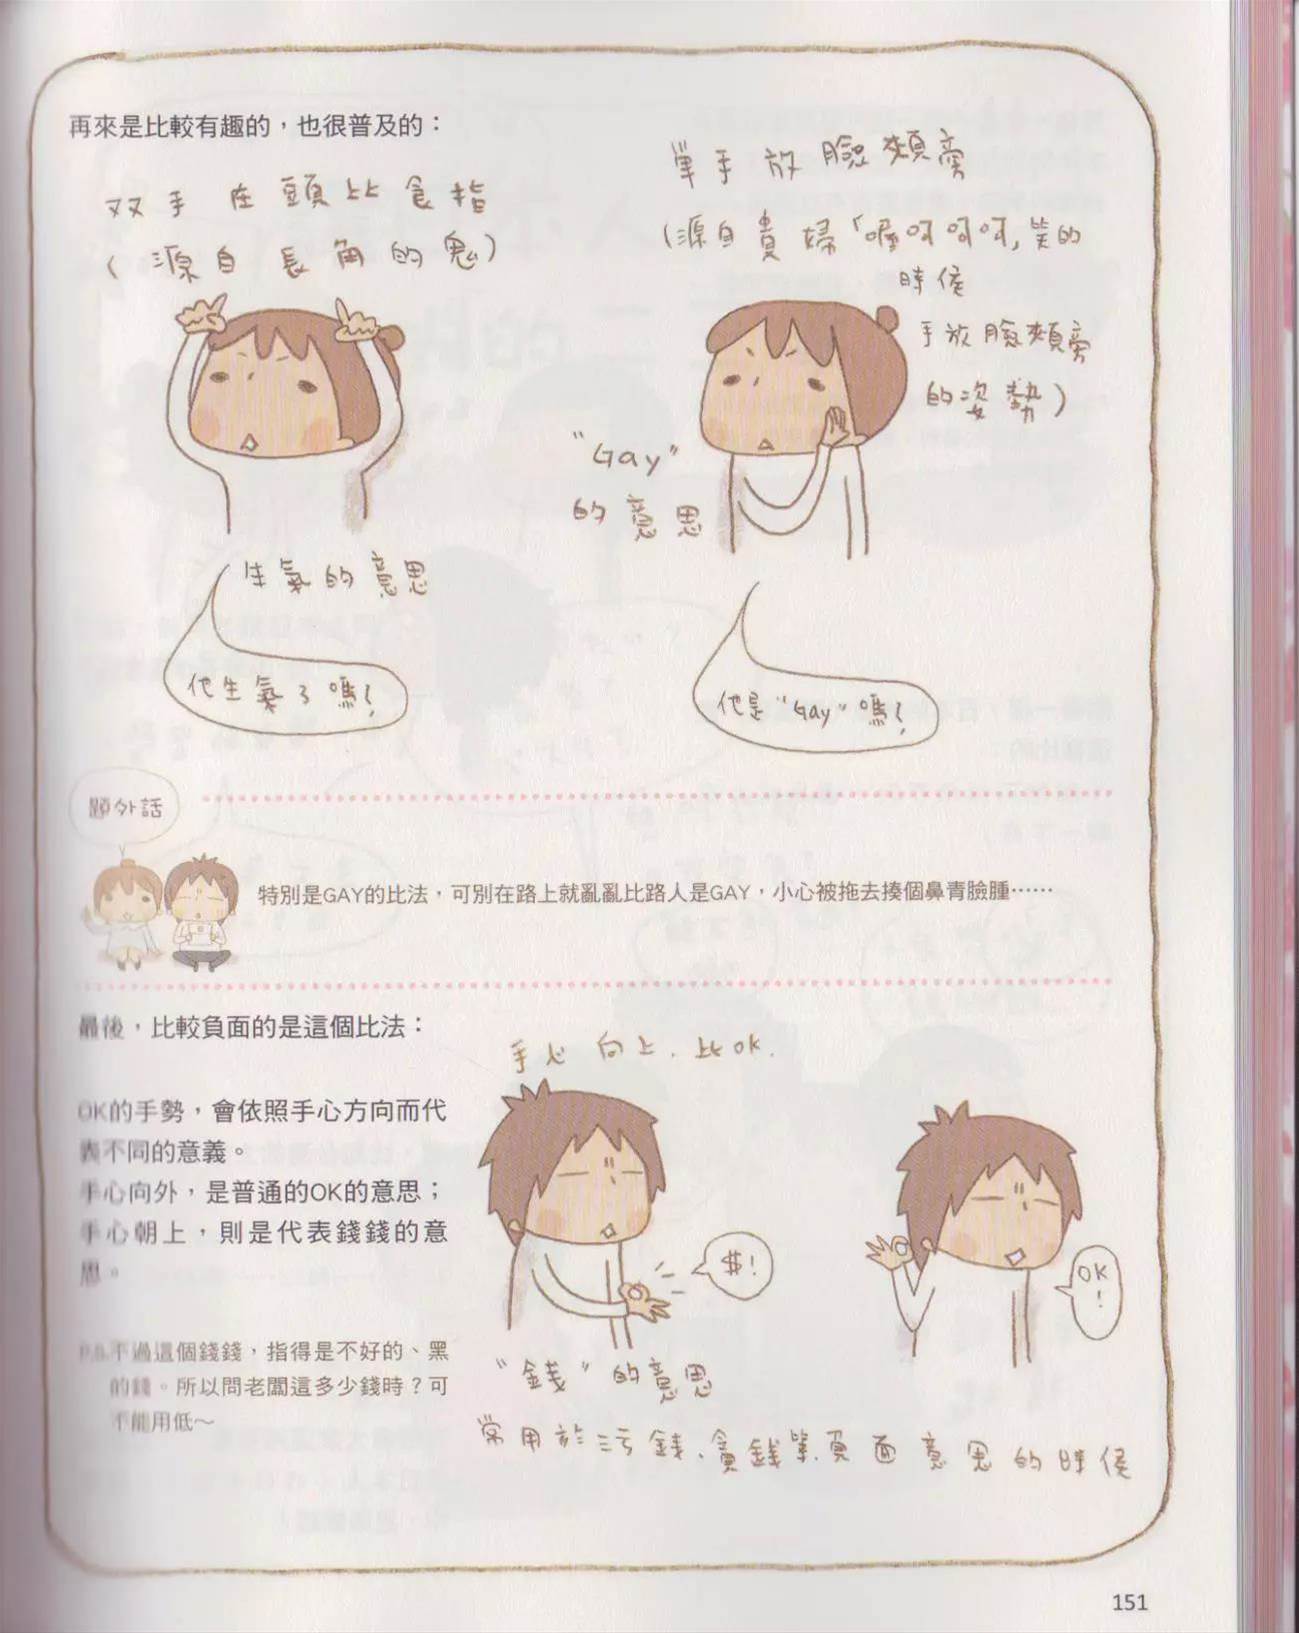 再來是比較有趣的，也很普及的：
双手在頭比食指
（源自長角的鬼）
單手放臉頰旁
（源自貴婦「喔呵呵呵」笑的
時候
手放臉頰旁
的姿勢）
"Gay"
的意思
生氣的意思
他生氣了嗎？
他是"Gay"嗎？
題外話
特別是GAY的比法，可別在路上就亂亂比路人是GAY，小心被拖去揍個鼻青臉腫……
最後，比較負面的是這個比法：
OK的手勢，會依照手心方向而代
表不同的意義。
手心向外，是普通的OK的意思；
手心朝上，則是代表錢錢的意
思。
P.S.不過這個錢錢，指得是不好的、黑
的錢。所以問老闆這多少錢時？可
不能用低～
手心向上．比OK．
$!
OK!
"錢"的意思
常用於污錢、貪錢等負面意思的時侯
151